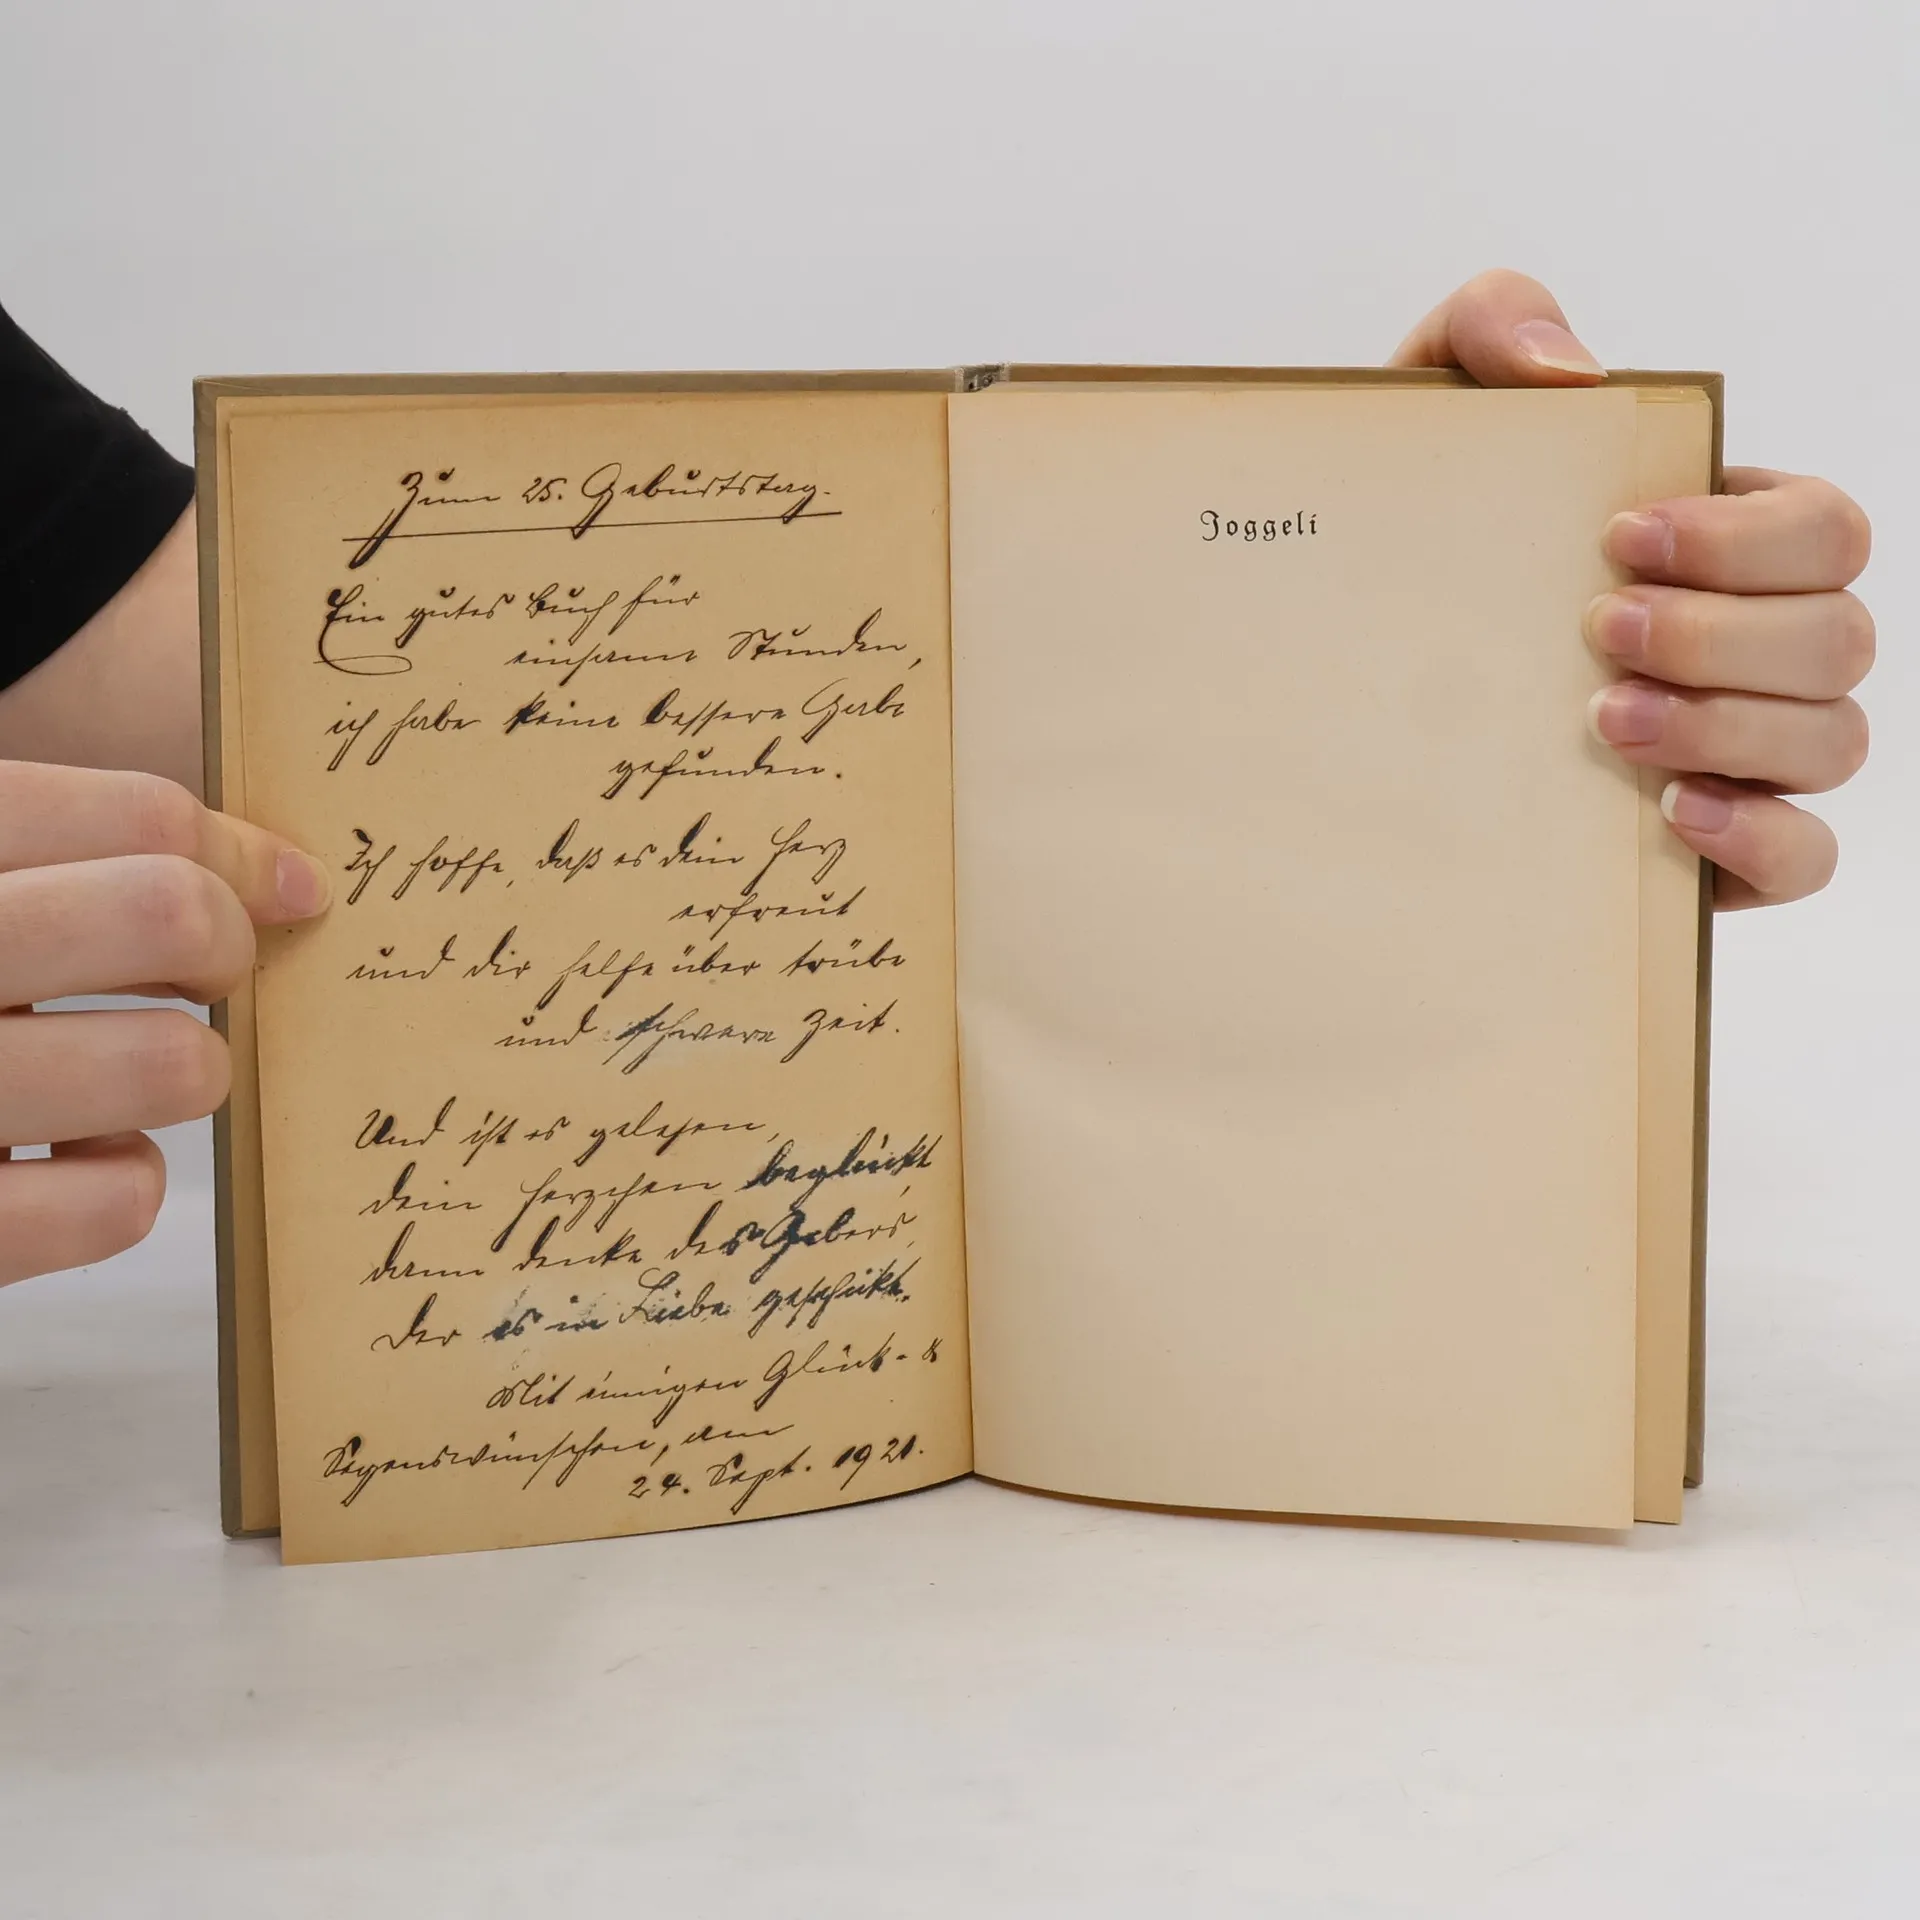 Zum 25. Geburtstag.
Ein gutes Buch für
einsame Stunden,
ich habe keine bessere Gabe
gefunden.
Ich hoffe, daß es dein Herz
erfreut
und dir helfe über trübe
und schwere Zeit.
Und ist es gelesen,
dein Herzchen beglückt,
dann denke des Gebers,
der es in Liebe geschickt.
Mit innigen Glück- &
Segenswünschen, am
24. Sept. 1921.
Joggeli